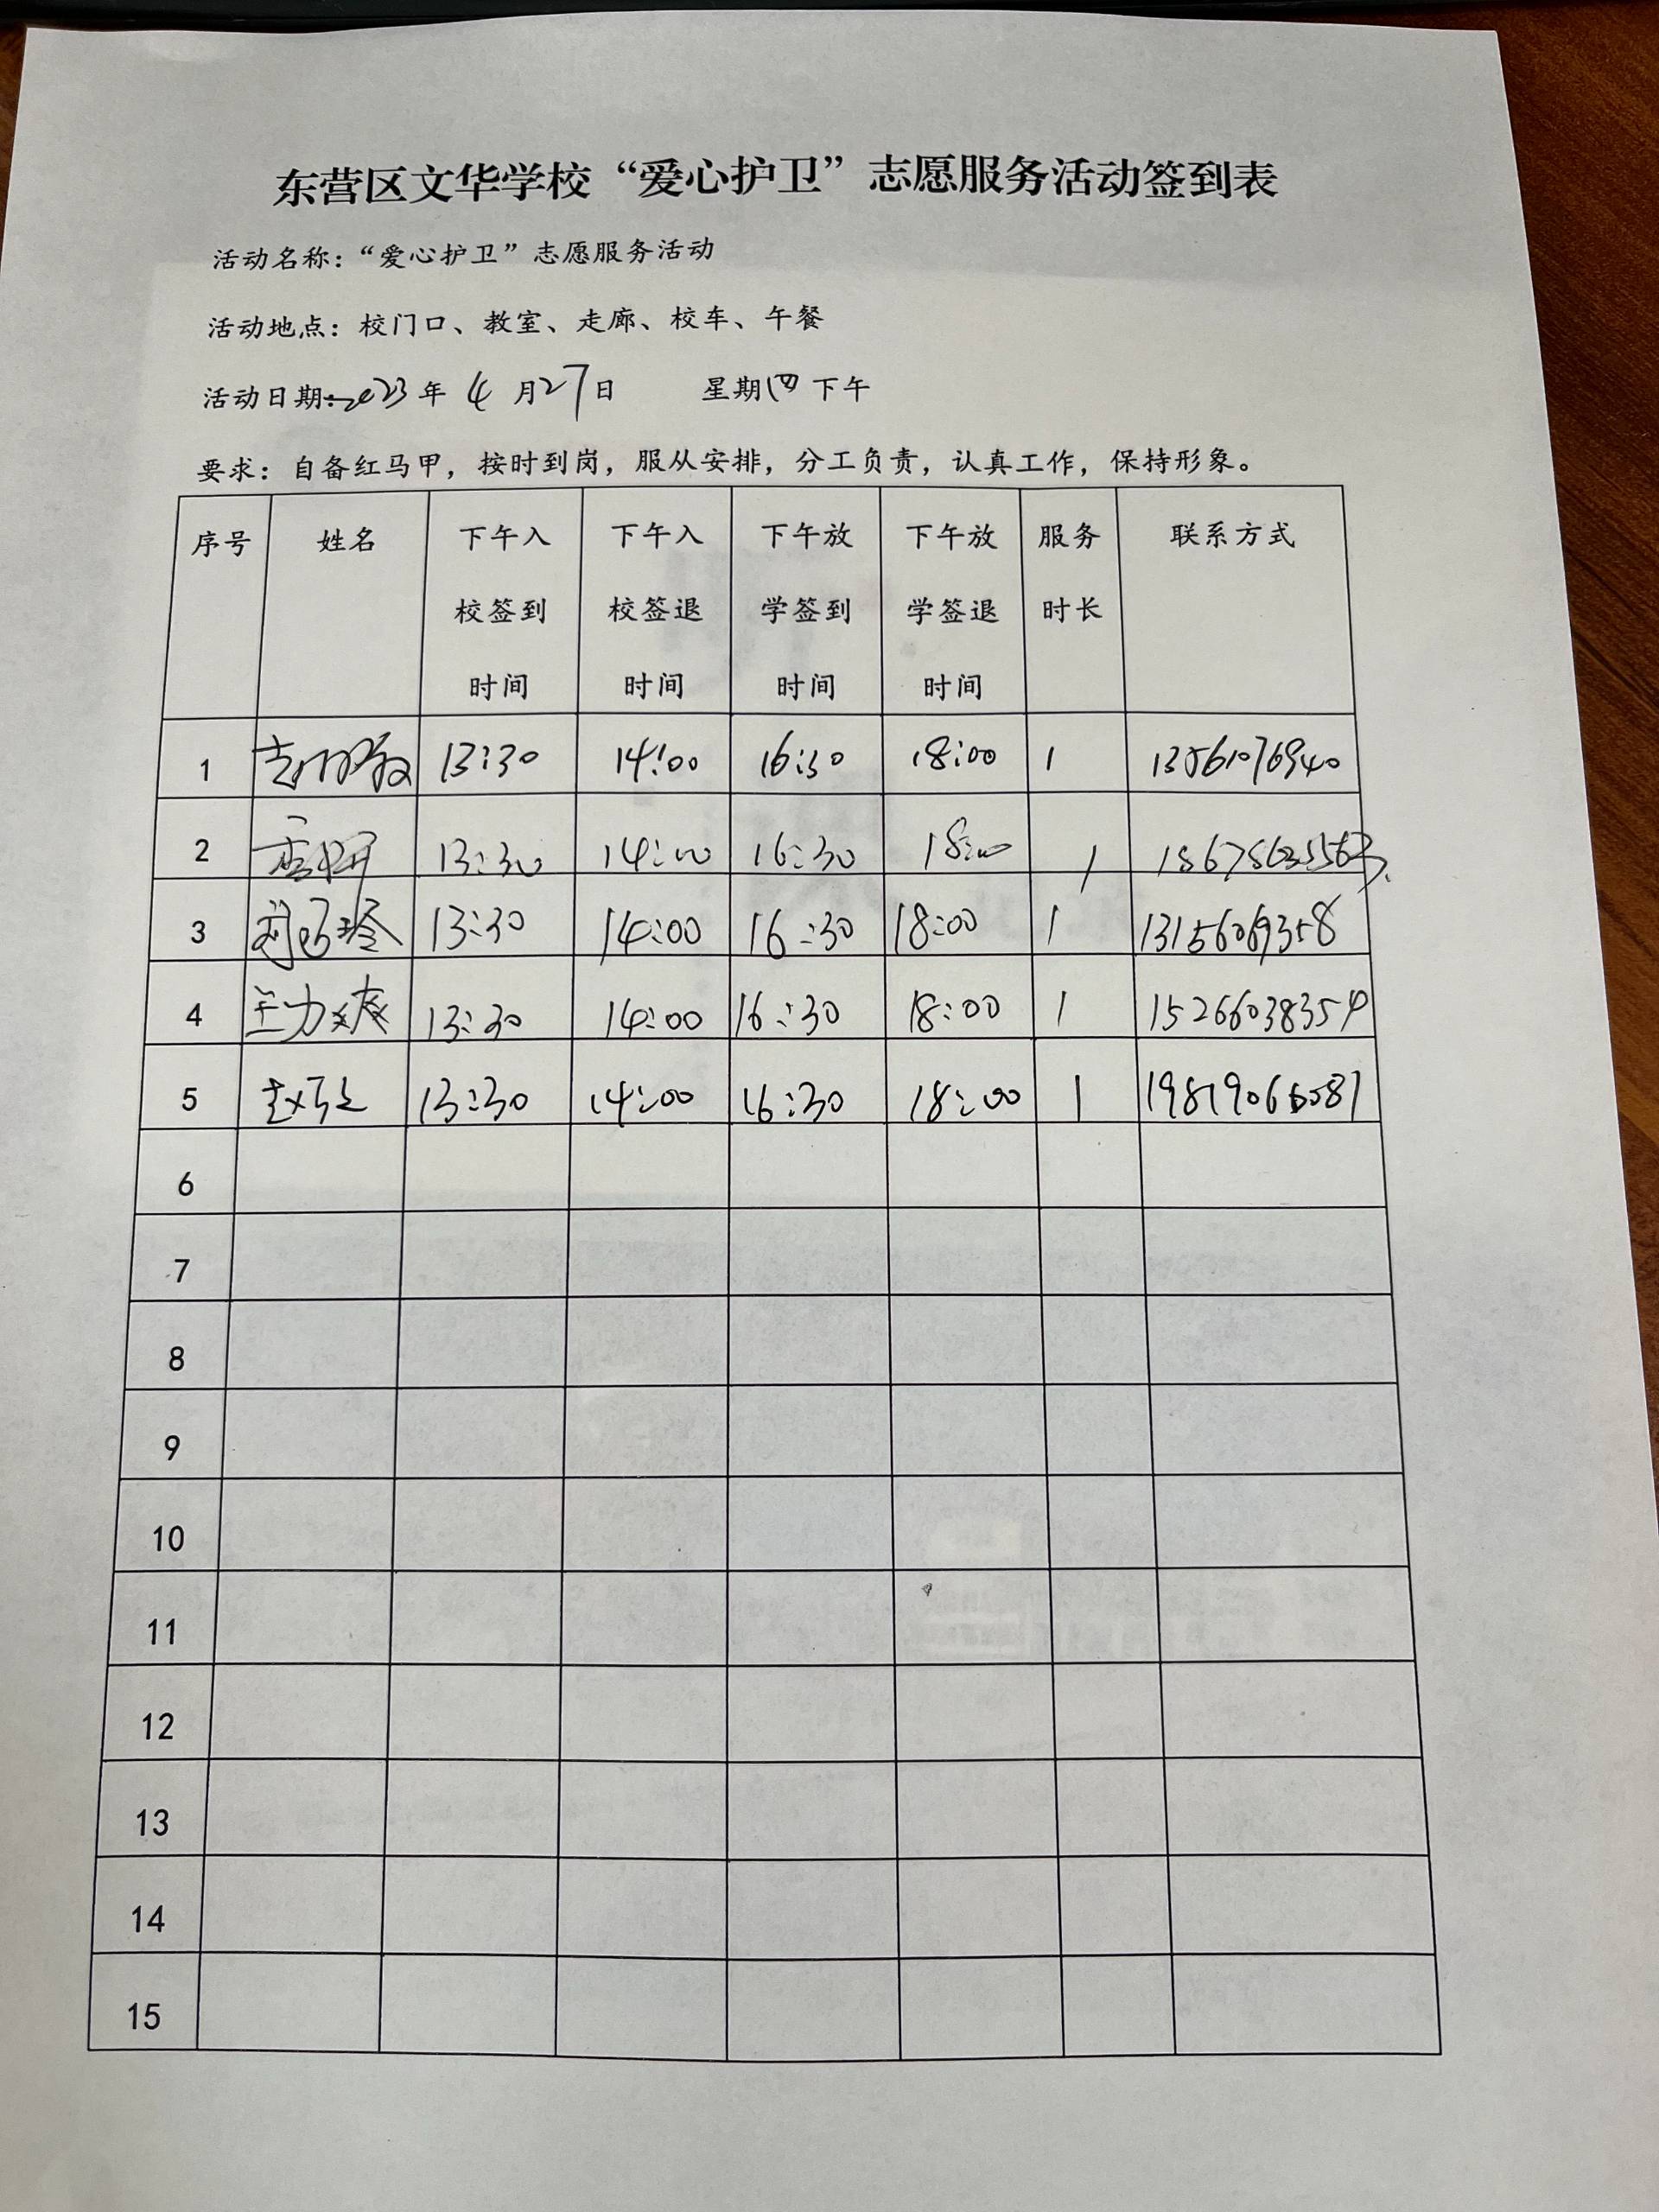 东营区文华学校“爱心护卫”志愿服务活动签到表
活动名称：“爱心护卫”志愿服务活动
活动地点：校门口、教室、走廊、校车、午餐
活动日期：2023年 4 月27日 星期四下午
要求：自备红马甲，按时到岗，服从安排，分工负责，认真工作，保持形象。
序号 姓名 下午入校签到时间 下午入校签退时间 下午放学签到时间 下午放学签退时间 服务时长 联系方式
1 13:30 14:00 16:30 18:00 1 13561076940
2 13:30 14:00 16:30 18:00 1
3 13:30 14:00 16:30 18:00 1 13156069358
4 13:30 14:00 16:30 18:00 1 15266038354
5 13:30 14:00 16:30 18:00 1
6
7
8
9
10
11
12
13
14
15